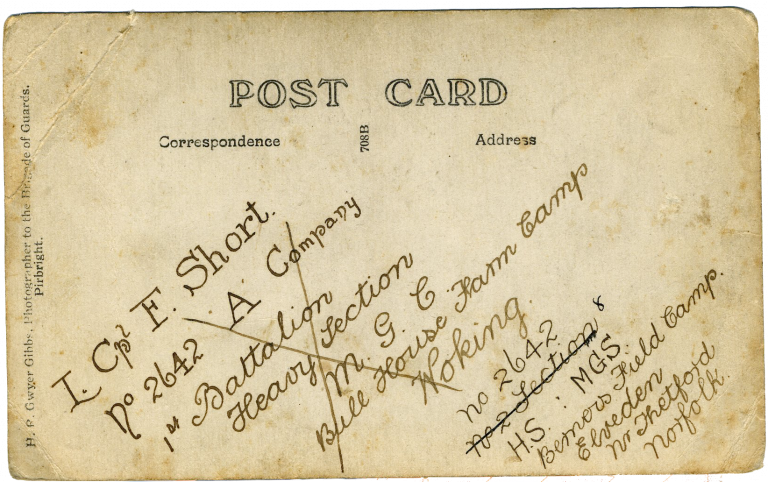 POST CARD
Correspondence
708B
Address
H. R. Gwyer Gibbs, Photographer to the Brigade of Guards.
Pirbright.
L. Cpl F. Short.
No 2642 . A Company
1st Battalion
Heavy Section
M. G. C.
Bull House Farm Camp
Woking.
No 2642
8
No 2 Section
H.S. : MGS
Elveden
Nr Thetford
Norfolk.